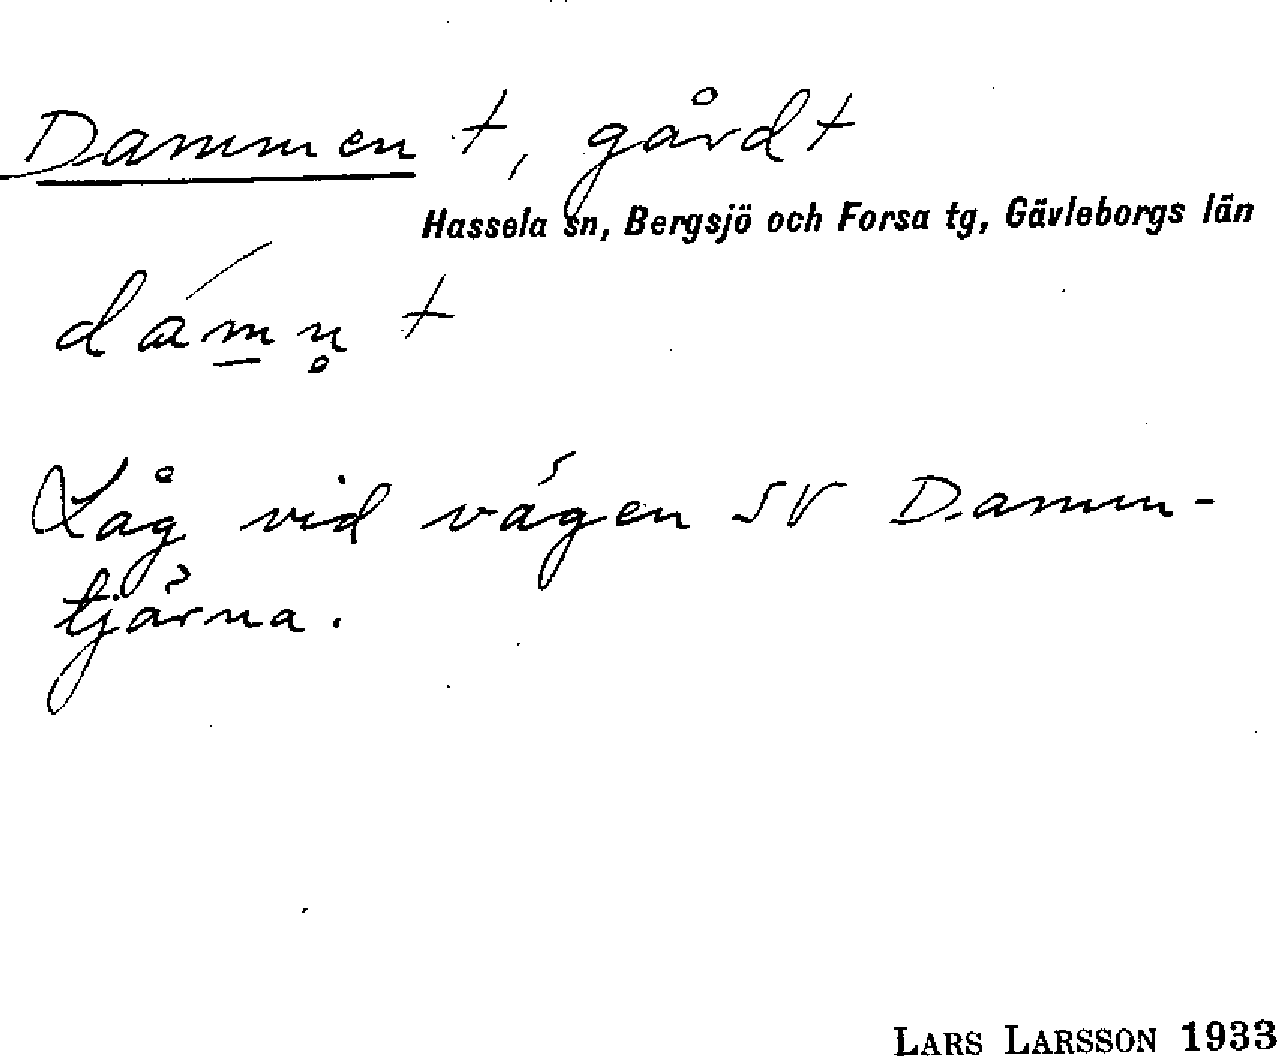 Dammen †, gård †
Hassela sn, Bergsjö och Forsa tg, Gävleborgs län
dám̲n̥ †
Låg vid vägen SV Damm-
tjärna.
LARS LARSSON 1933